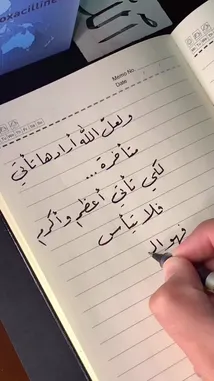 oxacilline
Memo No.
Date
ولعلّ الله أرادها تأتي
متأخرة...
لكي تأتي أعظم وأكرم
فلا تيأس
فهو ال